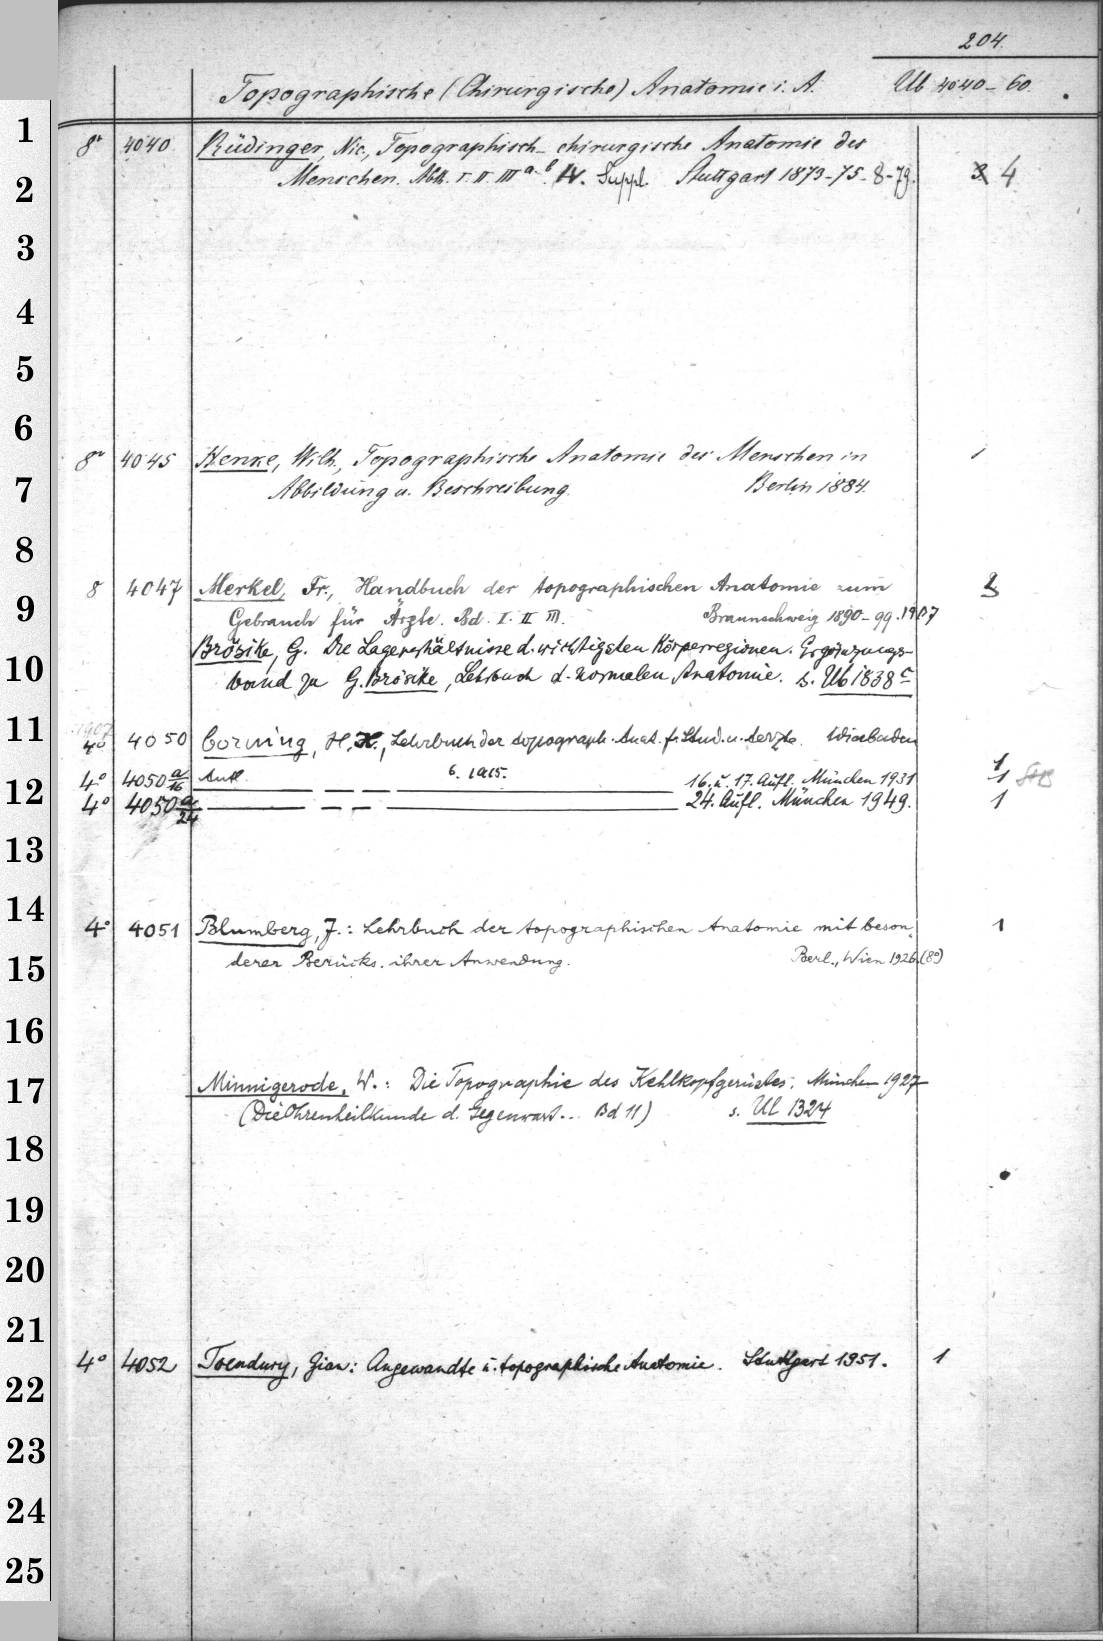 204.
Topographische (Chirurgische) Anatomie i. A. Ub 4040-60.
1 8° 4040 Rüdinger, Nic., Topographisch-chirurgische Anatomie des
2 Menschen. Abth. I. II. III a. b. IV. Suppl. Stuttgart 1873-75-8-79. 4
3
4
5
6
8° 4045 Henke, Wilh., Topographische Anatomie des Menschen in 1
7 Abbildung u. Beschreibung. Berlin 1884.
8
8 4047 Merkel, Fr., Handbuch der topographischen Anatomie zum 3
9 Gebrauch für Ärzte. Bd. I. II. III. Braunschweig 1890-99.1907
Brösike, G. Die Lageverhältnisse d. wichtigsten Körperregionen. Ergänzungs-
10 band zu G. Brösike, Lehrbuch d. normalen Anatomie. s. Ub 1838 c
1907
11 4° 4050 Corning, H. K., Lehrbuch der topograph. Anat. f. Stud. u. Aerzte. Wiesbaden
Aufl. 6. 1915. 1
4° 4050 a/16 — — — 16. u. 17. Aufl. München 1931 1
12 4° 4050 a/24 — — — 24. Aufl. München 1949. 1
13
14 4° 4051 Blumberg, J.: Lehrbuch der topographischen Anatomie mit beson- 1
15 derer Berücks. ihrer Anwendung. Berl., Wien 1926. (8°)
16
17 Minnigerode, W.: Die Topographie des Kehlkopfgerüstes. München 1927
(Die Ohrenheilkunde d. Gegenwart... Bd 11) s. Ul 1324
18
19
20
21
4° 4052 Toendury, Gian: Angewandte u. topographische Anatomie. Stuttgart 1951. 1
22
23
24
25